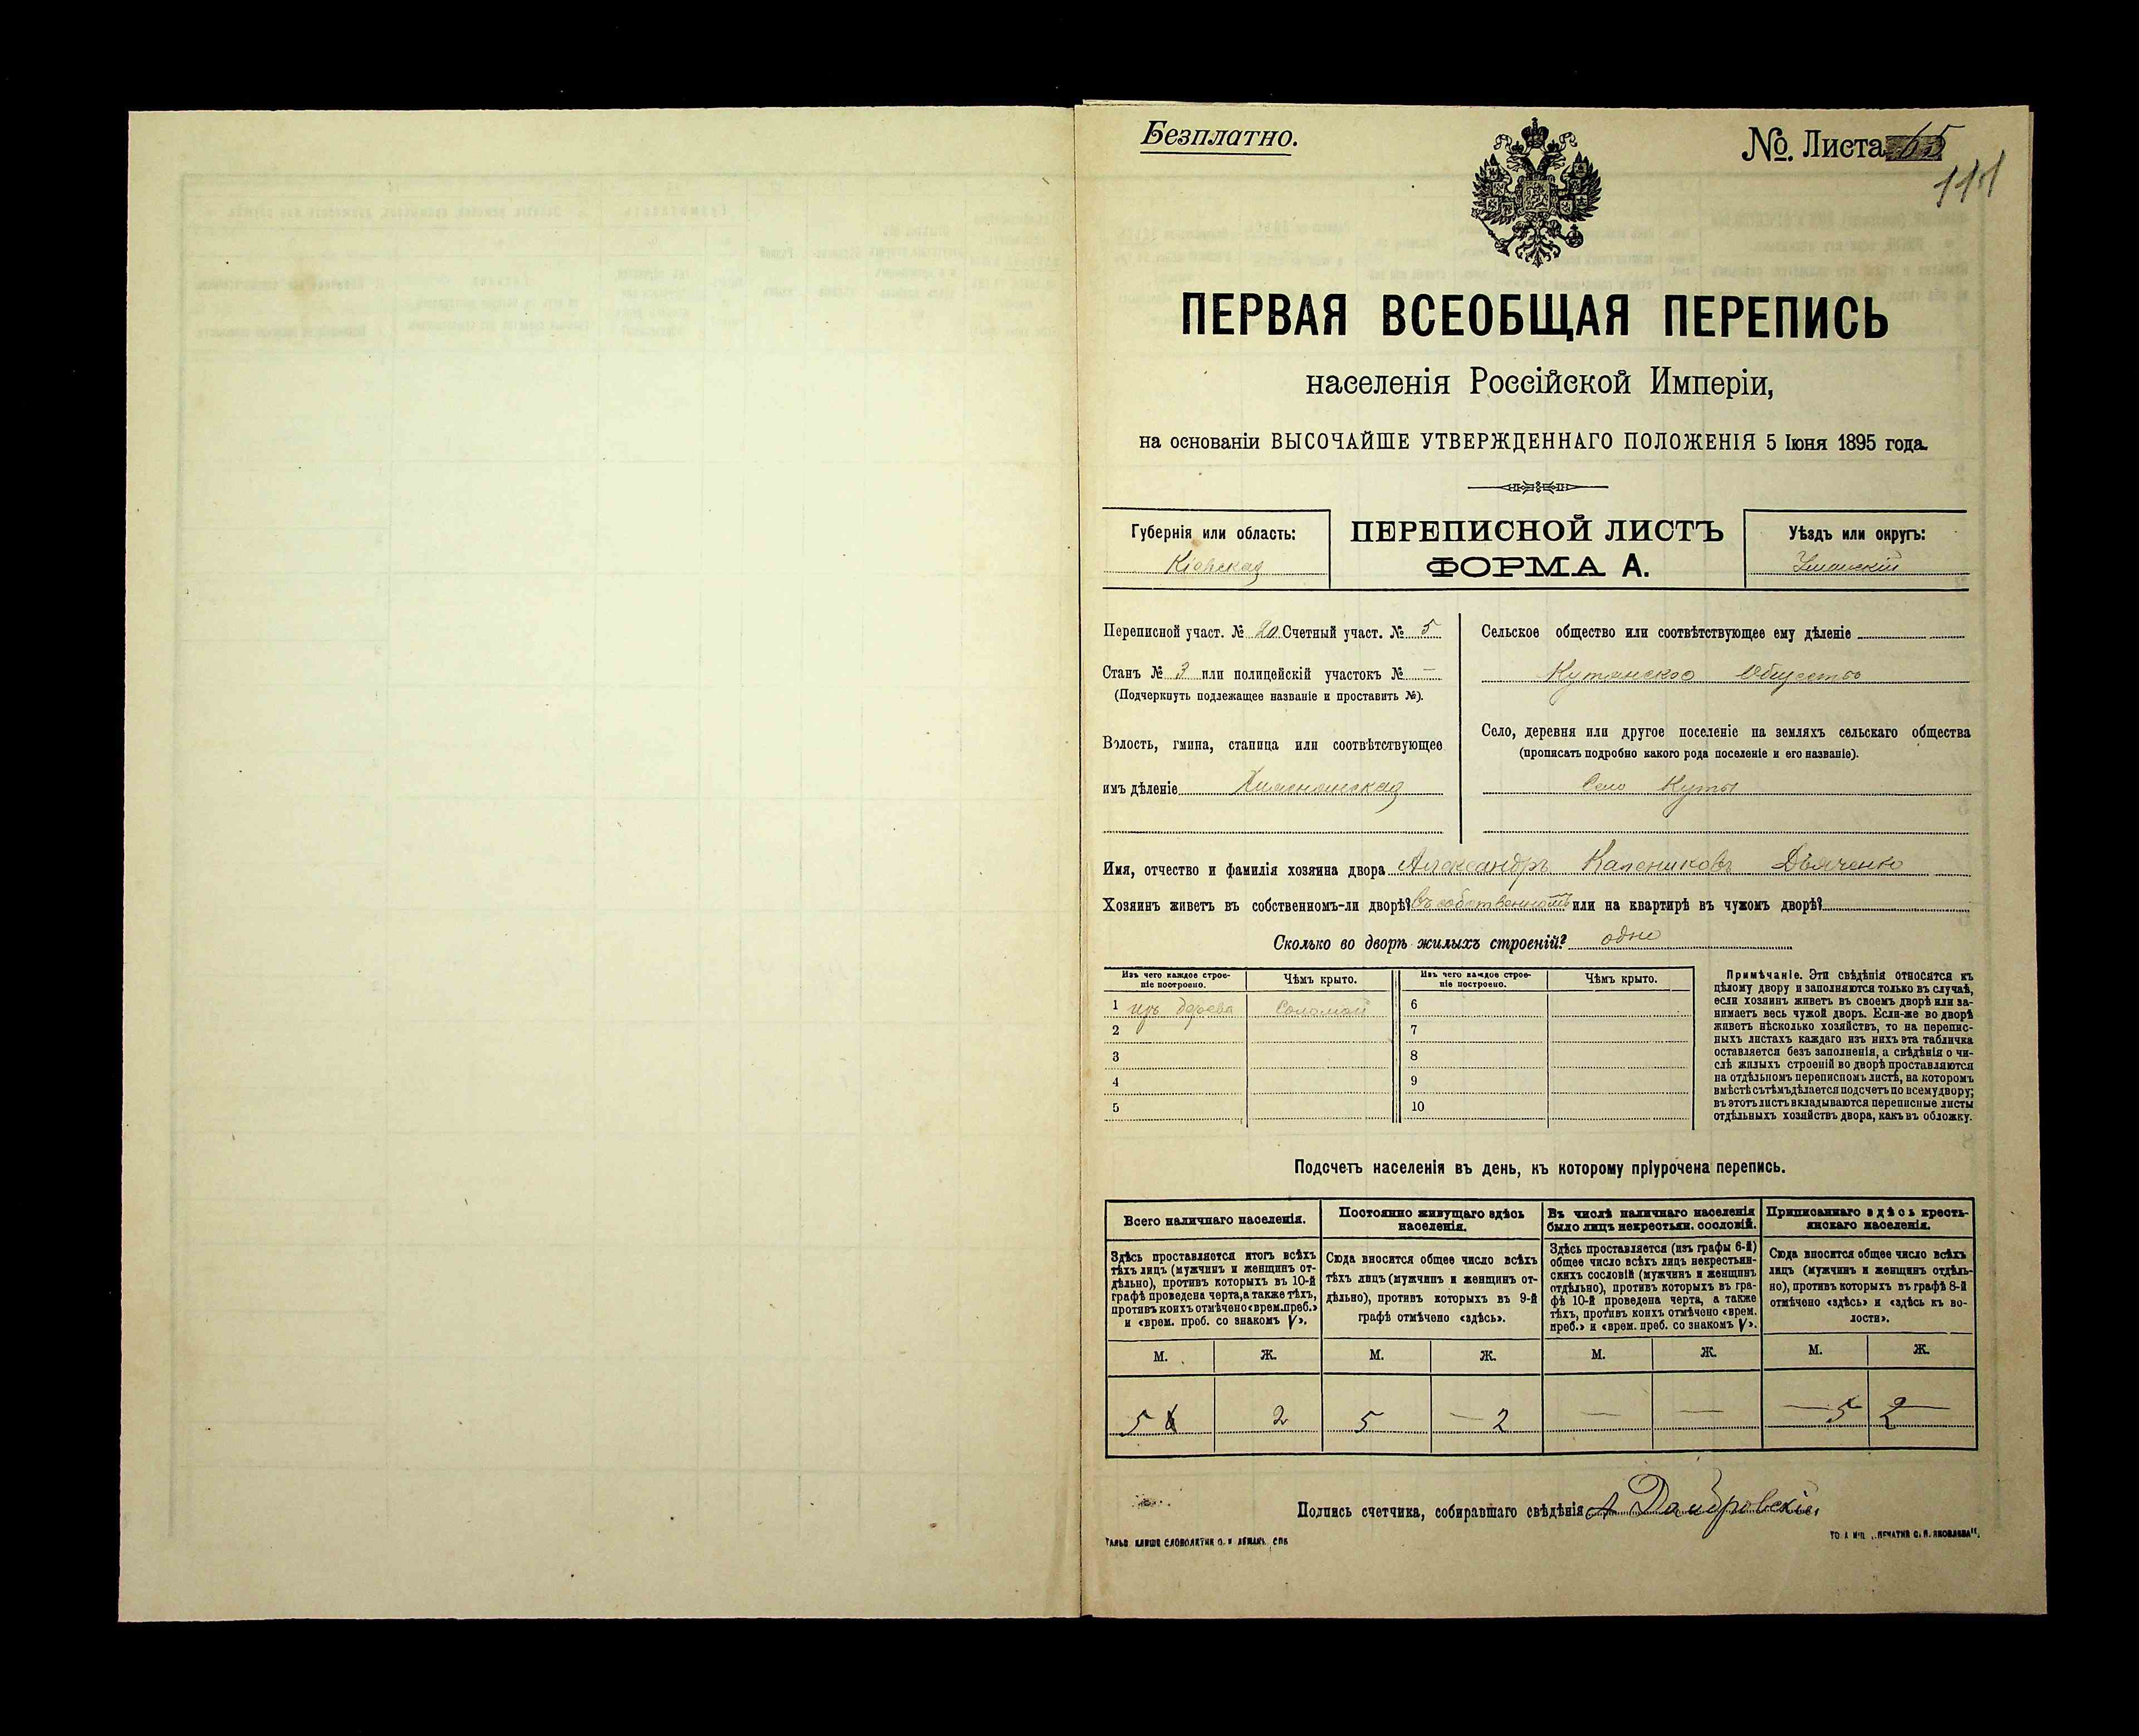 Безплатно.
№. Листа 65
111
ПЕРВАЯ ВСЕОБЩАЯ ПЕРЕПИСЬ
населенія Россійской Имперіи,
на основаніи ВЫСОЧАЙШЕ УТВЕРЖДЕННАГО ПОЛОЖЕНІЯ 5 Іюня 1895 года.
Губернія или область:
Кіевская
ПЕРЕПИСНОЙ ЛИСТЪ
ФОРМА А.
Уѣздъ или округъ:
Уманскій
Переписной участ. № 20 Счетный участ. № 5
Станъ № 3 или полицейскій участокъ № —
(Подчеркнуть подлежащее названіе и проставить №).
Волость, гмина, станица или соотвѣтствующее
имъ дѣленіе
Сельское общество или соотвѣтствующее ему дѣленіе
Кутянское Общество
Село, деревня или другое поселеніе на земляхъ сельскаго общества
(прописать подробно какого рода поселеніе и его названіе).
Село Куты
Имя, отчество и фамилія хозяина двора Александръ Калениковъ Дьяченко
Хозяинъ живетъ въ собственномъ-ли дворѣ? Въ собственномъ или на квартирѣ въ чужомъ дворѣ?
Сколько во дворѣ жилыхъ строеній? одно
Изъ чего каждое строе-
ніе построено.
Чѣмъ крыто.
Изъ чего каждое строе-
ніе построено.
Чѣмъ крыто.
1 изъ дерева Соломой 6
2 7
3 8
4 9
5 10
Примѣчаніе. Эти свѣдѣнія относятся къ
цѣлому двору и заполняются только въ случаѣ,
если хозяинъ живетъ въ своемъ дворѣ или за-
нимаетъ весь чужой дворъ. Если-же во дворѣ
живетъ нѣсколько хозяйствъ, то на перепис-
ныхъ листахъ каждаго изъ нихъ эта табличка
оставляется безъ заполненія, а свѣдѣнія о чи-
слѣ жилыхъ строеній во дворѣ проставляются
на отдѣльномъ переписномъ листѣ, на которомъ
вмѣстѣ съ тѣмъ дѣлается подсчетъ по всему двору;
въ этотъ листъ вкладываются переписные листы
отдѣльныхъ хозяйствъ двора, какъ въ обложку.
Подсчетъ населенія въ день, къ которому пріурочена перепись.
Всего наличнаго населенія.
Здѣсь проставляется итогъ всѣхъ
тѣхъ лицъ (мужчинъ и женщинъ от-
дѣльно), противъ которыхъ въ 10-й
графѣ проведена черта, а также тѣхъ,
противъ коихъ отмѣчено «врем. преб.»
и «врем. преб. со знакомъ V».
Постоянно живущаго здѣсь
населенія.
Сюда вносится общее число всѣхъ
тѣхъ лицъ (мужчинъ и женщинъ от-
дѣльно), противъ которыхъ въ 9-й
графѣ отмѣчено «здѣсь».
Въ числѣ наличнаго населенія
было лицъ некрестьян. сословій.
Здѣсь проставляется (изъ графы 6-й)
общее число всѣхъ лицъ некрестьян-
скихъ сословій (мужчинъ и женщинъ
отдѣльно), противъ которыхъ въ гра-
фѣ 10-й проведена черта, а также
тѣхъ, противъ коихъ отмѣчено «врем.
преб.» и «врем. преб. со знакомъ V».
Приписаннаго здѣсь кресть-
янскаго населенія.
Сюда вносится общее число всѣхъ
лицъ (мужчинъ и женщинъ отдѣль-
но), противъ которыхъ въ графѣ 8-й
отмѣчено «здѣсь» и «здѣсь къ во-
лости».
М. Ж. М. Ж. М. Ж. М. Ж.
5 2 5 — 2 — — — 5 2 —
Подпись счетчика, собиравшаго свѣдѣнія